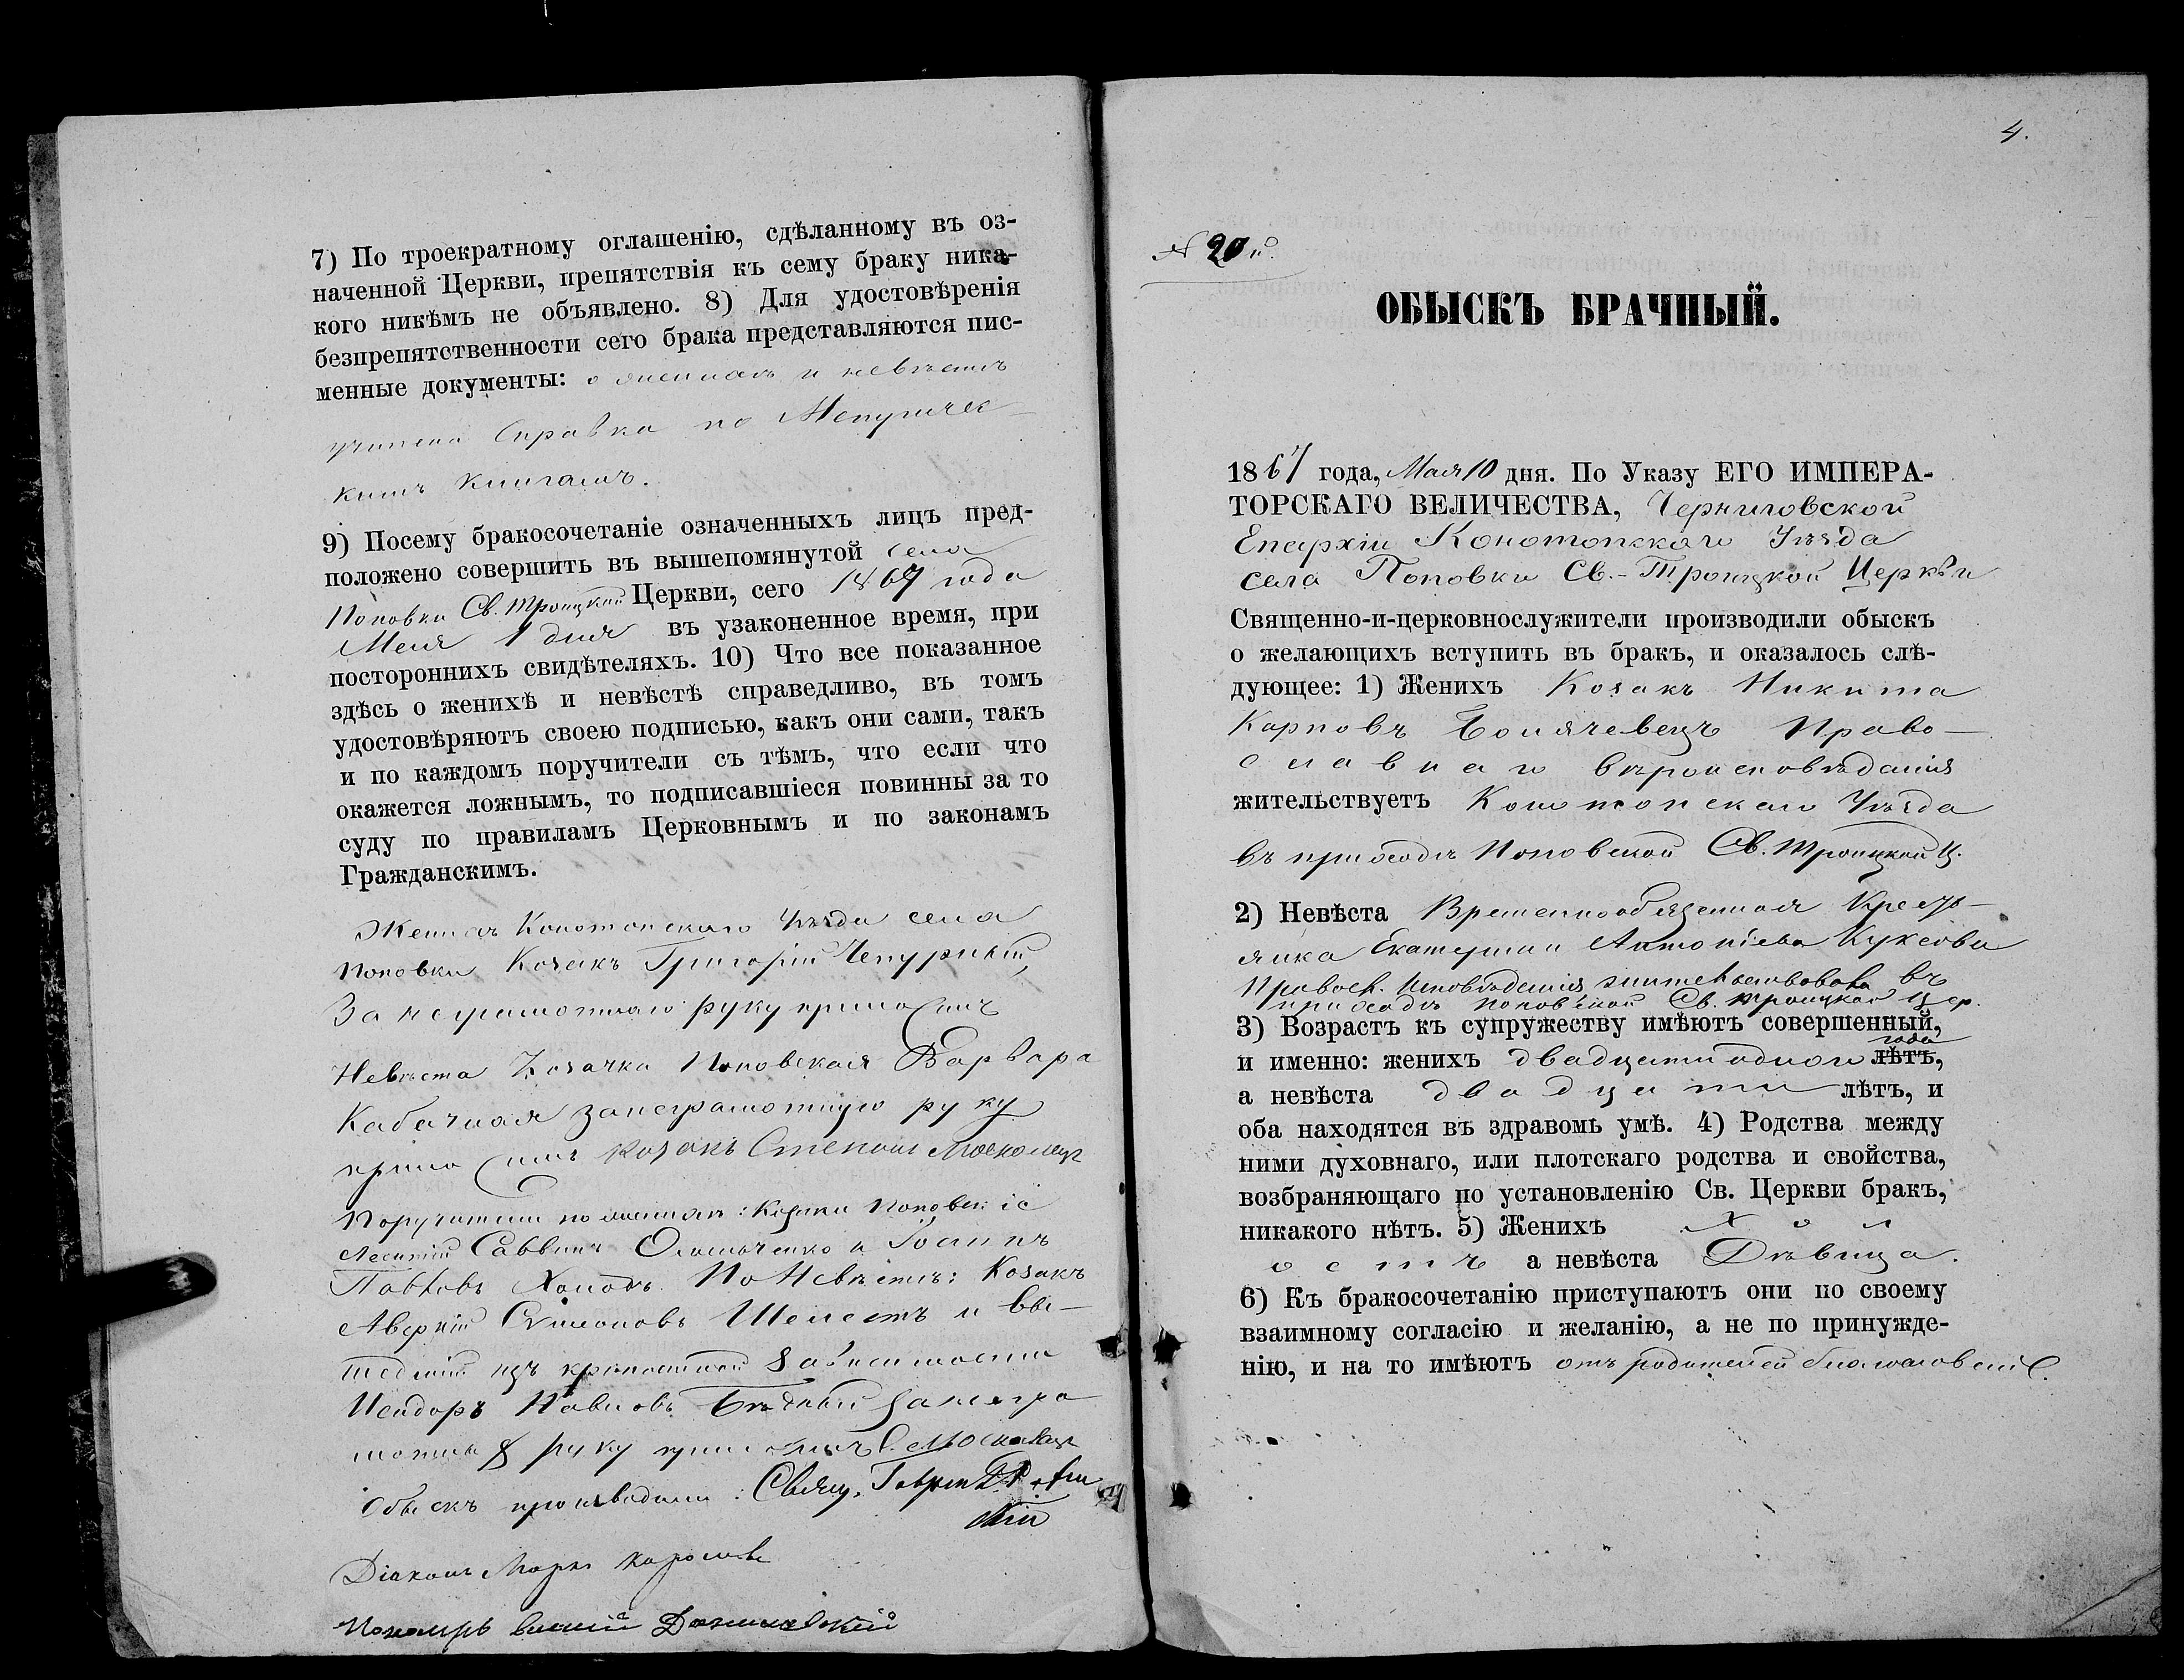 7) По троекратному оглашенію, сдѣланному въ оз-
наченной Церкви, препятствія къ сему браку ника-
кого никѣмъ не объявлено. 8) Для удостовѣренія
безпрепятственности сего брака представляются пис-
менные документы: о женихѣ и невѣстѣ
учинена Справка по Метричес-
кимъ книгамъ.
9) Посему бракосочетаніе означенныхъ лицъ пред-
положено совершить въ вышепомянутой села
Поповки Св. Троицкой Церкви, сего 1867 года
Мая 1 дня въ узаконенное время, при
постороннихъ свидѣтеляхъ. 10) Что все показанное
здѣсь о женихѣ и невѣстѣ справедливо, въ томъ
удостовѣряютъ своею подписью, какъ они сами, такъ
и по каждомъ поручители съ тѣмъ, что если что
окажется ложнымъ, то подписавшіеся повинны за то
суду по правиламъ Церковнымъ и по законамъ
Гражданскимъ.
Женихъ Конотопскаго Уѣзда села
Поповки Козакъ Григорій Чепурный,
За неграмотнаго руку приложилъ
Невѣста Козачка Поповская Варвара
Кабачная за неграмотную руку
приложилъ Козакъ Степанъ Москалецъ
Поручители по женихѣ: Козаки Поповскіе
Леонтій Саввинъ и Іоаннъ
Павловъ Холодъ. По Невѣстѣ: Козакъ
Аверкій Симоновъ Шелестъ и вы-
шедшій изъ крѣпостной зависимости
Исидоръ Павловъ Бѣдный за негра
мотныхъ руку приложилъ С. Москалецъ
Обыскъ производили: Свящ.
Діаконъ Марко
Пономарь
4.
№ 20й.
ОБЫСКЪ БРАЧНЫЙ.
1867 года, Мая 10 дня. По Указу ЕГО ИМПЕРА-
ТОРСКАГО ВЕЛИЧЕСТВА, Черниговской
Епархіи Конотопскаго Уѣзда
села Поповки Св.-Троицкой Церкви
Священно-и-церковнослужители производили обыскъ
о желающихъ вступить въ бракъ, и оказалось слѣ-
дующее: 1) Женихъ Козакъ Никита
Карповъ Право-
славнаго вѣроисповѣданія
жительствуетъ Конотопскаго Уѣзда
въ приходѣ Поповской Св. Троицкой Ц.
2) Невѣста Временнообязанная Крестъ-
янка Екатерина Антоніева Куксова
Правосл. Исповѣданія жительствовала въ
приходѣ Поповской Св. Троицкой Цер.
3) Возрастъ къ супружеству имѣютъ совершенный,
и именно: женихъ двадцати одного года лѣтъ,
а невѣста двадцати лѣтъ, и
оба находятся въ здравомъ умѣ. 4) Родства между
ними духовнаго, или плотскаго родства и свойства,
возбраняющаго по установленію Св. Церкви бракъ,
никакого нѣтъ. 5) Женихъ Хол
остъ а невѣста Дѣвица.
6) Къ бракосочетанію приступаютъ они по своему
взаимному согласію и желанію, а не по принужде-
нію, и на то имѣютъ отъ родителей благословеніе.